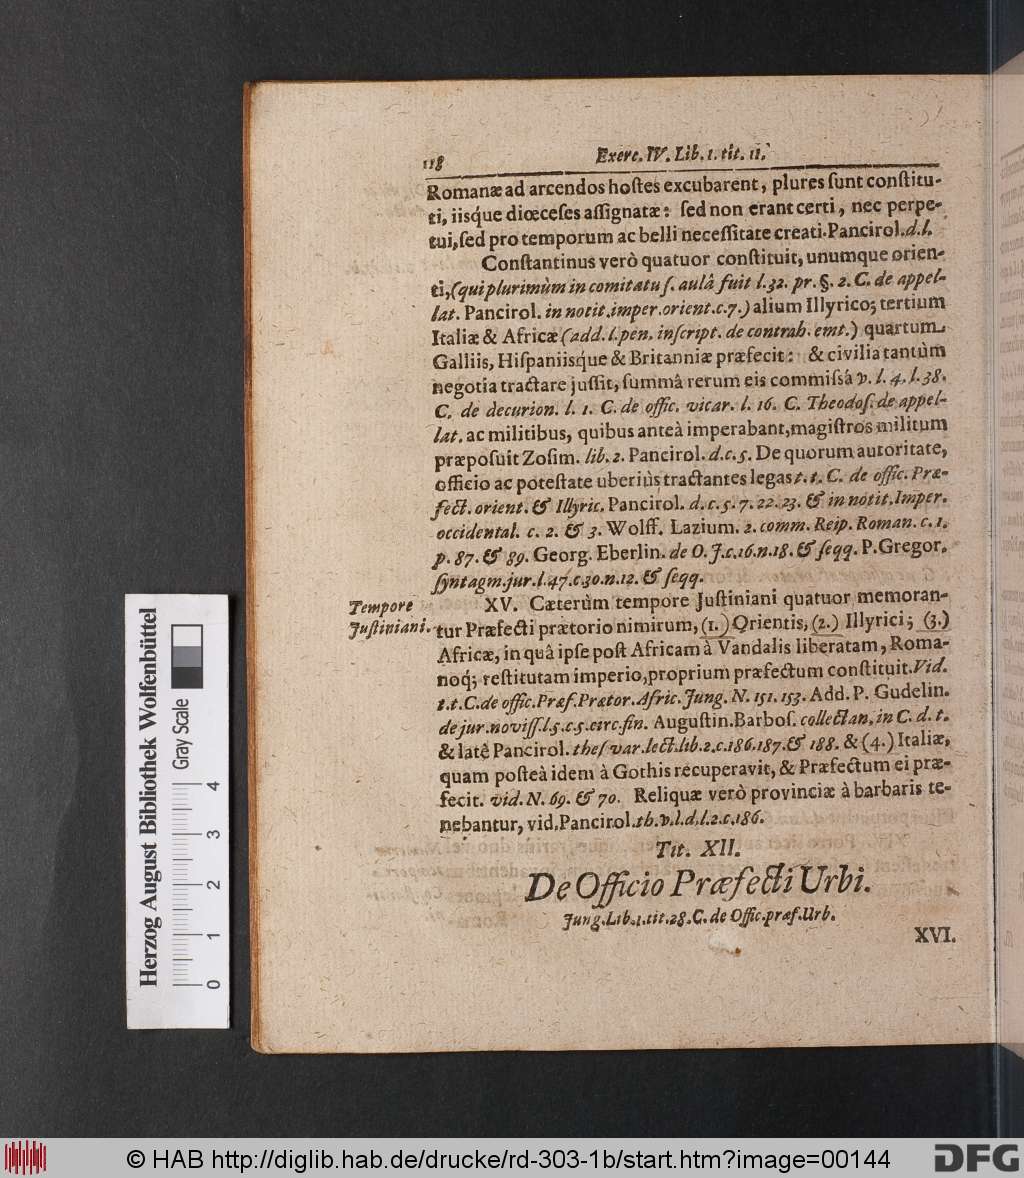 118
Exerc. IV. Lib. 1. tit. 11.
Romanæ ad arcendos hoſtes excubarent, plures ſunt conſtitu-
ti, iisque diœceſes aſſignatæ: ſed non erant certi, nec perpe-
tui, ſed pro temporum ac belli neceſſitate creati. Pancirol. d. l.
Conſtantinus verò quatuor conſtituit, unumque orien-
ti, (qui plurimùm in comitatu ſ. aulâ fuit l. 32. pr. §. 2. C. de appel-
lat. Pancirol. in notit. imper. orient. c. 7.) alium Illyrico; tertium
Italiæ & Africæ (add. l. pen. inſcript. de contrah. emt.) quartum
Galliis, Hiſpaniisque & Britanniæ præfecit: & civilia tantùm
negotia tractare juſſit, ſummâ rerum eis commiſsâ v. l. 4. l. 38.
C. de decurion. l. 1. C. de offic. vicar. l. 16. C. Theodoſ. de appel-
lat. ac militibus, quibus anteà imperabant, magiſtros militum
præpoſuit Zoſim. lib. 2. Pancirol. d. c. 5. De quorum autoritate,
officio ac poteſtate uberiùs tractantes legas t. t. C. de offic. Præ-
fect. orient. & Illyric. Pancirol. d. c. 5. 7. 22. 23. & in notit. Imper.
occidental. c. 2. & 3. Wolff. Lazium. 2. comm. Reip. Roman. c. 1.
p. 87. & 89. Georg. Eberlin. de O. J. c. 16. n. 18. & ſeqq. P. Gregor.
ſyntagm. jur. l. 47. c 30. n. 12. & ſeqq.
Tempore
Juſtiniani.
XV. Cæterùm tempore Juſtiniani quatuor memoran-
tur Præfecti prætorio nimirum, (1.) Orientis, (2.) Illyrici; (3.)
Africæ, in quâ ipſe poſt Africam à Vandalis liberatam, Roma-
noq; reſtitutam imperio, proprium præfectum conſtituit. Vid.
t. t. C. de offic. Præf. Prætor. Afric. Jung. N. 151. 153. Add. P. Gudelin.
de jur. noviſſ. l. 5. c. 5. circ. fin. Auguſtin. Barboſ. collectan. in C. d. t.
& latè Pancirol. theſ var. lect. lib. 2. c. 186. 187. & 188. & (4.) Italiæ,
quam poſteà idem à Gothis recuperavit, & Præfectum ei præ-
fecit. vid. N. 69. & 70. Reliquæ verò provinciæ à barbaris te-
nebantur, vid. Pancirol. th. v. l. d. l. 2. c. 186.
Tit. XII.
De Officio Præfecti Urbi.
Jung. Lib. 1. tit. 28. C. de Offic. præf. Urb.
XVI.
Herzog August Bibliothek Wolfenbüttel
Gray Scale
0 1 2 3 4
© HAB http://diglib.hab.de/drucke/rd-303-1b/start.htm?image=00144
DFG